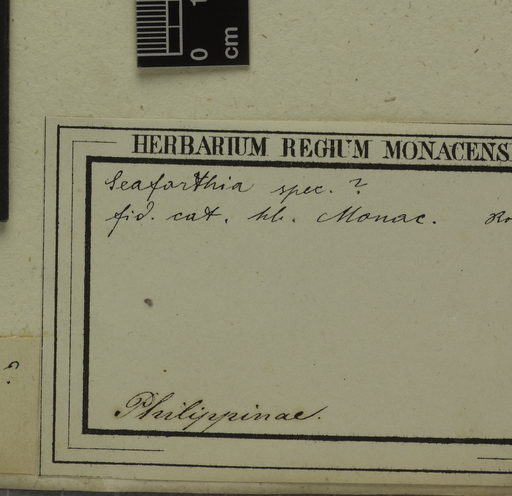 0 1
cm
HERBARIUM REGIUM MONACENS
Seaforthia spec. ?
fid. cat. hb. Monac. Ro
Philippinae.